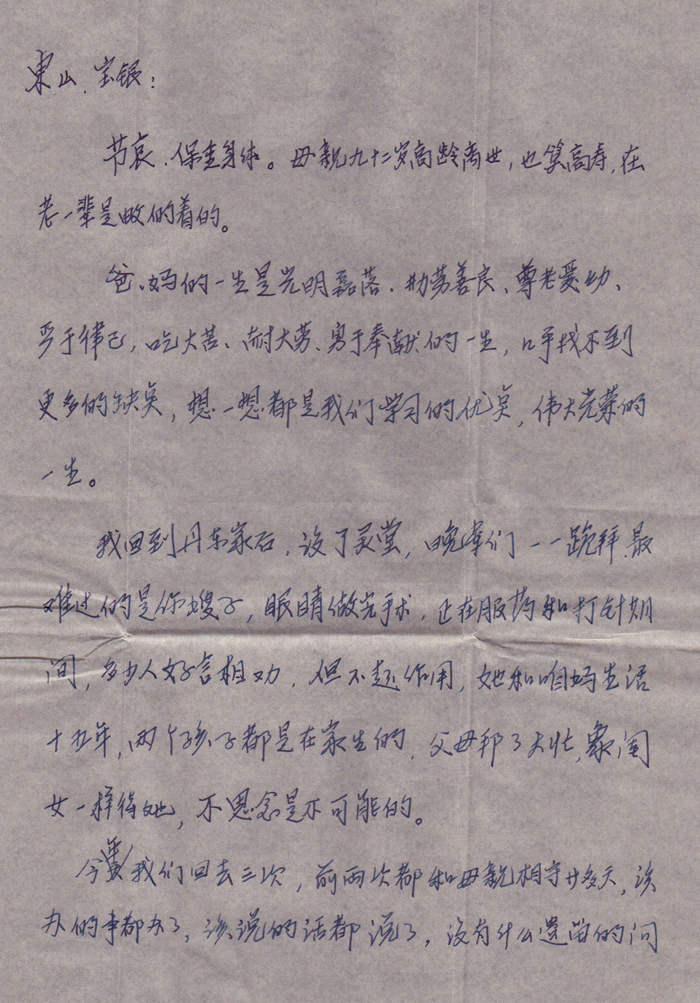 東山、宝银：
节哀、保重身体。母亲九十二岁高龄离世，也算高寿，在
老一辈是数的着的。
爸、妈的一生是光明磊落、勤劳善良、尊老爱幼、
严于律己，吃大苦、耐大劳、勇于奉献的一生，几乎找不到
更多的缺点，想一想都是我们学习的优点，伟大光荣的
一生。
我回到丹东家后，设了灵堂，晚辈们一一跪拜，最
难过的是你嫂子，眼睛做完手术，正在服药和打针期
间，多少人好言相劝，但不起作用，她和咱妈生活
十五年，两个孩子都是在家生的，父母帮了大忙，象闺
女一样待她，不思念是不可能的。
今年我们回去三次，前两次都和母亲相守廿多天，该
办的事都办了，该说的话都说了，没有什么遗留的问